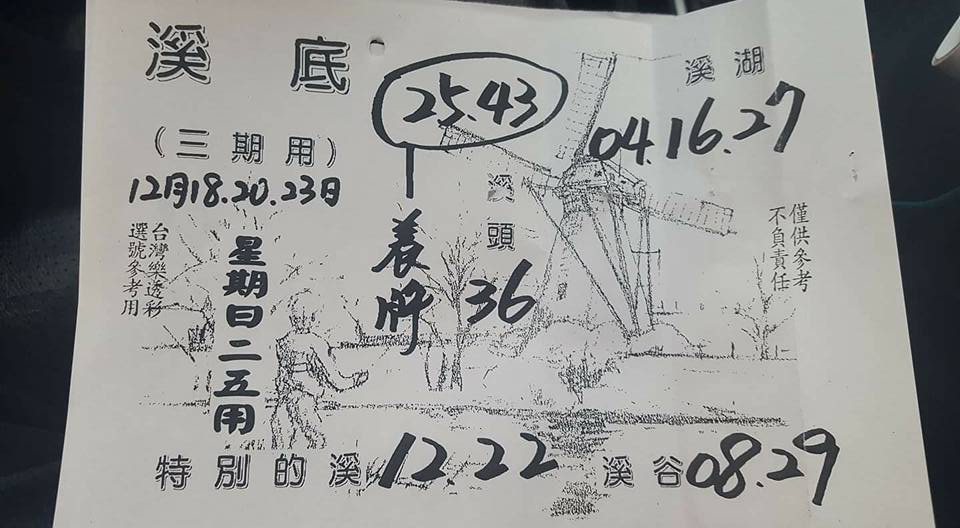 溪底
25.43
溪湖
04.16.27
(三期用)
12月18.20.23日
溪頭
36
養牌
僅供參考
不負責任
台灣樂透彩
選號參考用
星期日二五用
特別的溪 12.22
溪谷 08.29